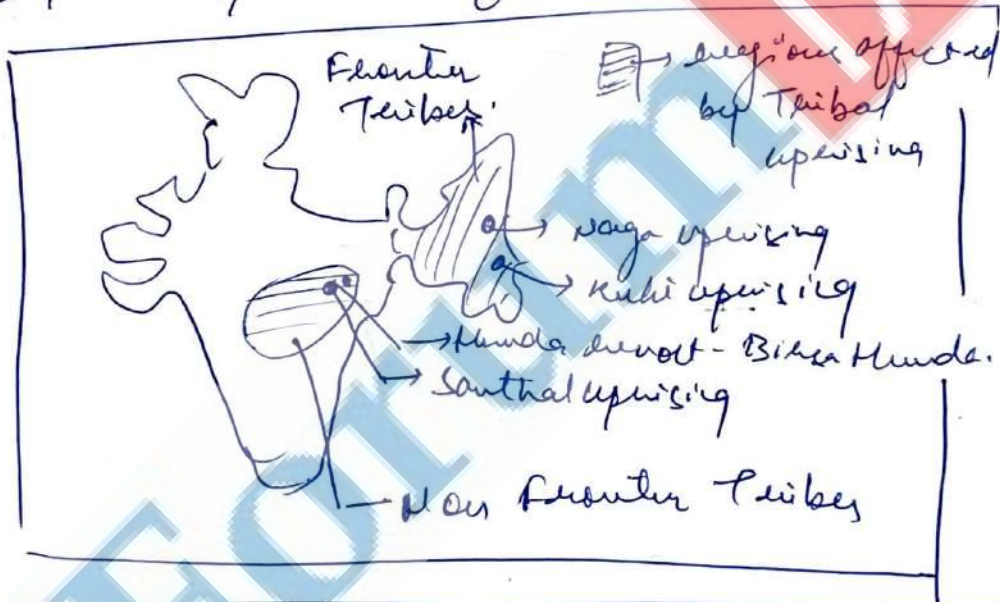 Frontier
Tribes
→ regions affected
by Tribal
uprising
→ Naga uprising
→ Kuki uprising
→ Munda revolt - Birsa Munda.
→ Santhal uprising
Non Frontier Tribes